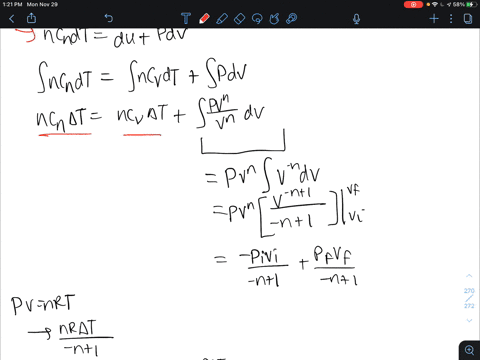 1:21 PM Mon Nov 29
58%
→ nCndT = du + Pdv
∫nCndT = ∫nCvdT + ∫Pdv
nCnΔT = nCvΔT + ∫PVⁿ/Vⁿ dv
= PVⁿ ∫V⁻ⁿdv
= PVⁿ [V⁻ⁿ⁺¹/-n+1]|Vf Vi
= -PiVi/-n+1 + PfVf/-n+1
PV=nRT
→ nRΔT/-n+1
270
/
272